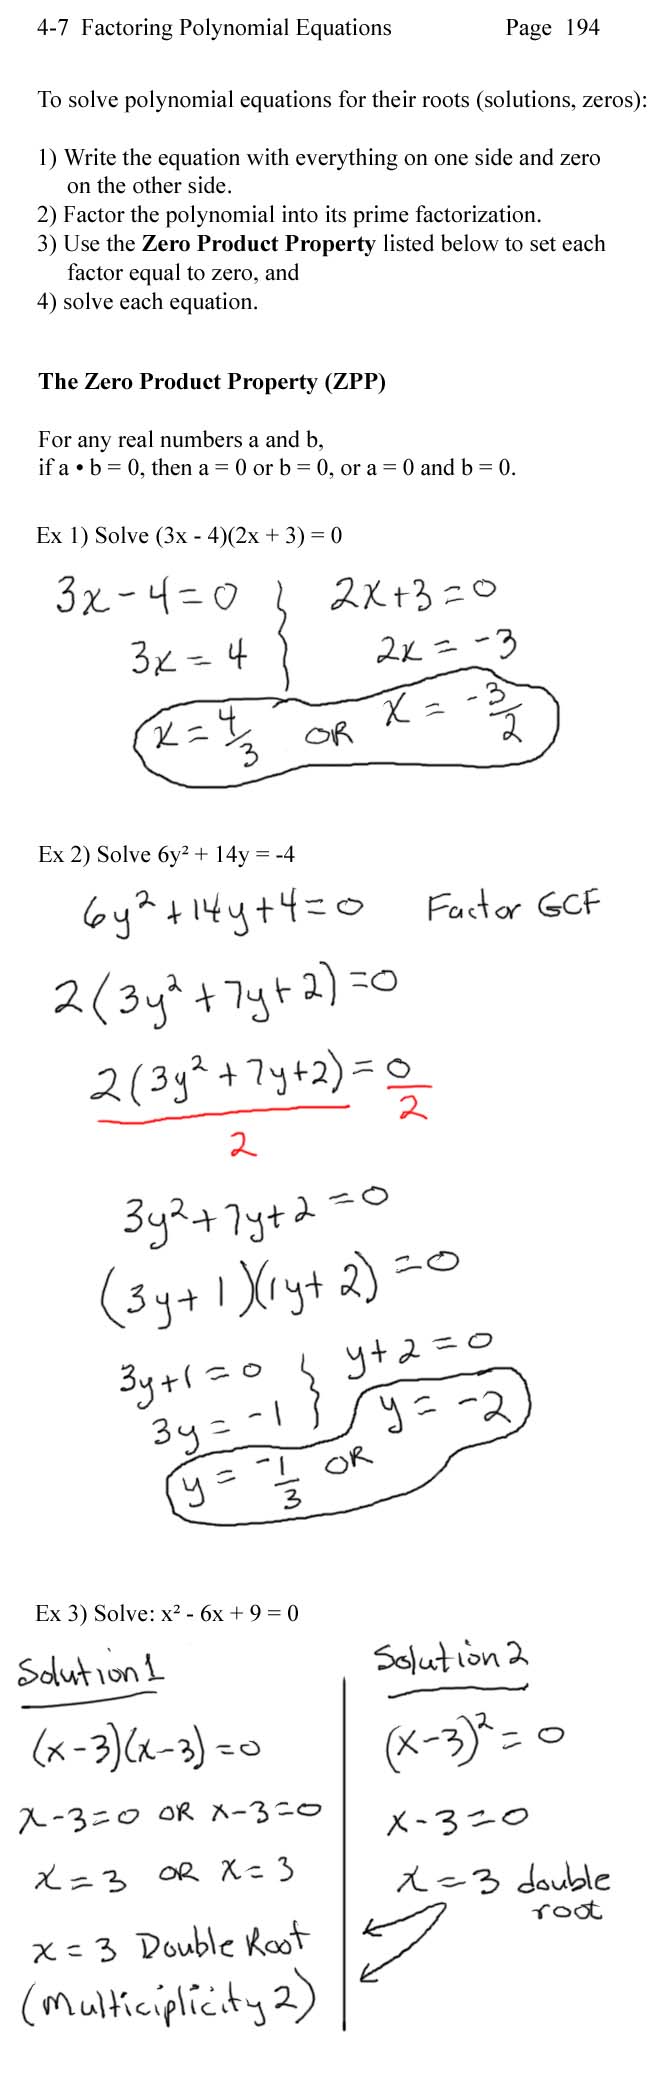 4-7 Factoring Polynomial Equations Page 194
To solve polynomial equations for their roots (solutions, zeros):
1) Write the equation with everything on one side and zero
on the other side.
2) Factor the polynomial into its prime factorization.
3) Use the Zero Product Property listed below to set each
factor equal to zero, and
4) solve each equation.
The Zero Product Property (ZPP)
For any real numbers a and b,
if a • b = 0, then a = 0 or b = 0, or a = 0 and b = 0.
Ex 1) Solve (3x - 4)(2x + 3) = 0
3x - 4 = 0 } 2x + 3 = 0
3x = 4 2x = -3
x = 4/3 OR x = -3/2
Ex 2) Solve 6y² + 14y = -4
6y² + 14y + 4 = 0 Factor GCF
2(3y² + 7y + 2) = 0
2(3y² + 7y + 2) = 0
2 2
3y² + 7y + 2 = 0
(3y + 1)(1y + 2) = 0
3y + 1 = 0 } y + 2 = 0
3y = -1 y = -2
y = -1/3 OR
Ex 3) Solve: x² - 6x + 9 = 0
Solution 1
(x - 3)(x - 3) = 0
x - 3 = 0 OR x - 3 = 0
x = 3 OR x = 3
x = 3 Double Root
(Multiciplicity 2)
Solution 2
(x - 3)² = 0
x - 3 = 0
x = 3 double
root